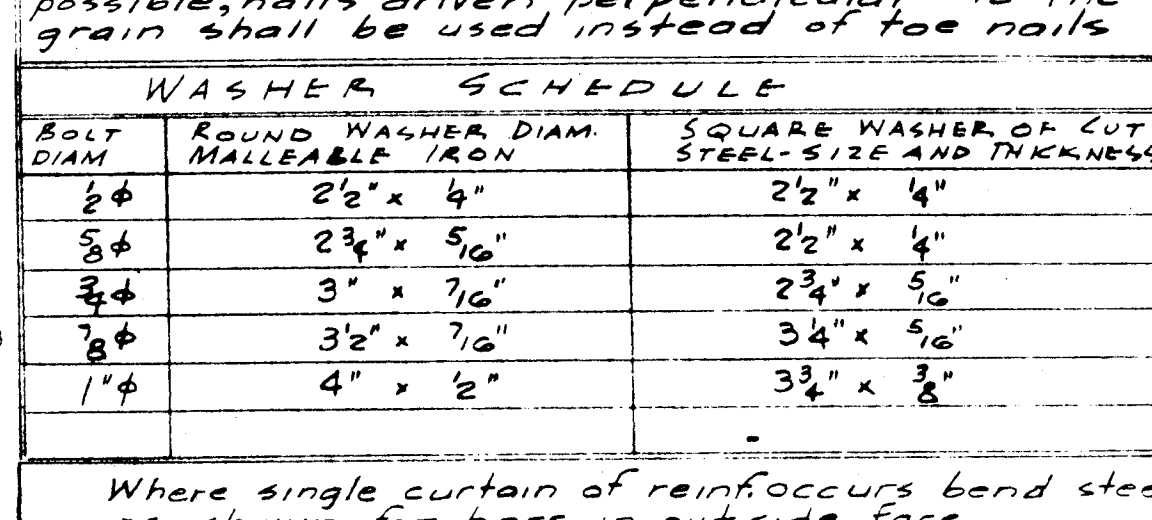 possible, nails driven perpendicular to the
grain shall be used instead of toe nails
WASHER SCHEDULE
BOLT DIAM
ROUND WASHER DIAM. MALLEABLE IRON
SQUARE WASHER OF CUT STEEL-SIZE AND THICKNESS
1/2 φ 2 1/2" x 1/4" 2 1/2" x 1/4"
5/8 φ 2 3/4" x 5/16" 2 1/2" x 1/4"
3/4 φ 3" x 7/16" 2 3/4" x 5/16"
7/8 φ 3 1/2" x 7/16" 3 1/4" x 5/16"
1" φ 4" x 1/2" 3 3/4" x 3/8"
Where single curtain of reinf. occurs bend stee